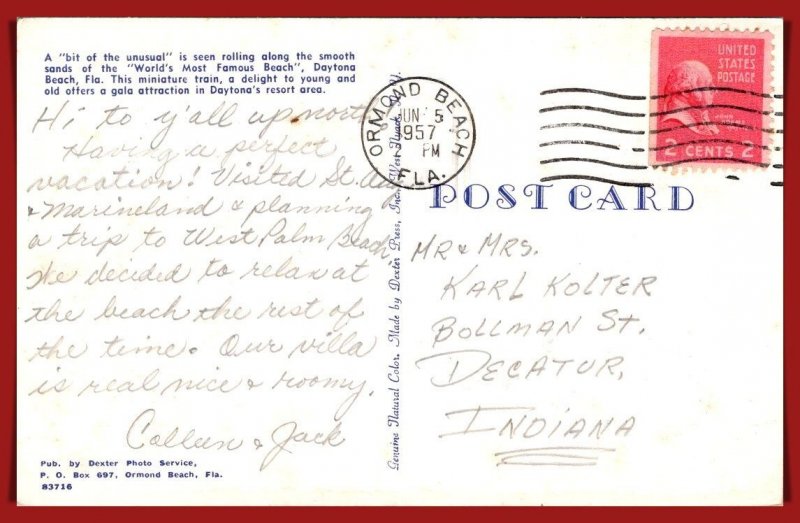 A "bit of the unusual" is seen rolling along the smooth
sands of the "World's Most Famous Beach", Daytona
Beach, Fla. This miniature train, a delight to young and
old offers a gala attraction in Daytona's resort area.
Hi to y'all up north
Having a perfect
vacation! Visited St. Aug
& Marineland & planning
a trip to West Palm Beach
We decided to relax at
the beach the rest of
the time. Our villa
is real nice & roomy.
Colleen & Jack
Pub. by Dexter Photo Service,
P. O. Box 697, Ormond Beach, Fla.
83716
Genuine Natural Color. Made by Dexter Press, Inc., West Nyack, N.Y.
ORMOND BEACH
JUN 5
1957
PM
FLA.
UNITED
STATES
POSTAGE
JOHN
2 CENTS 2
POST CARD
MR & MRS.
KARL KOLTER
BOLLMAN St.
DECATUR,
INDIANA